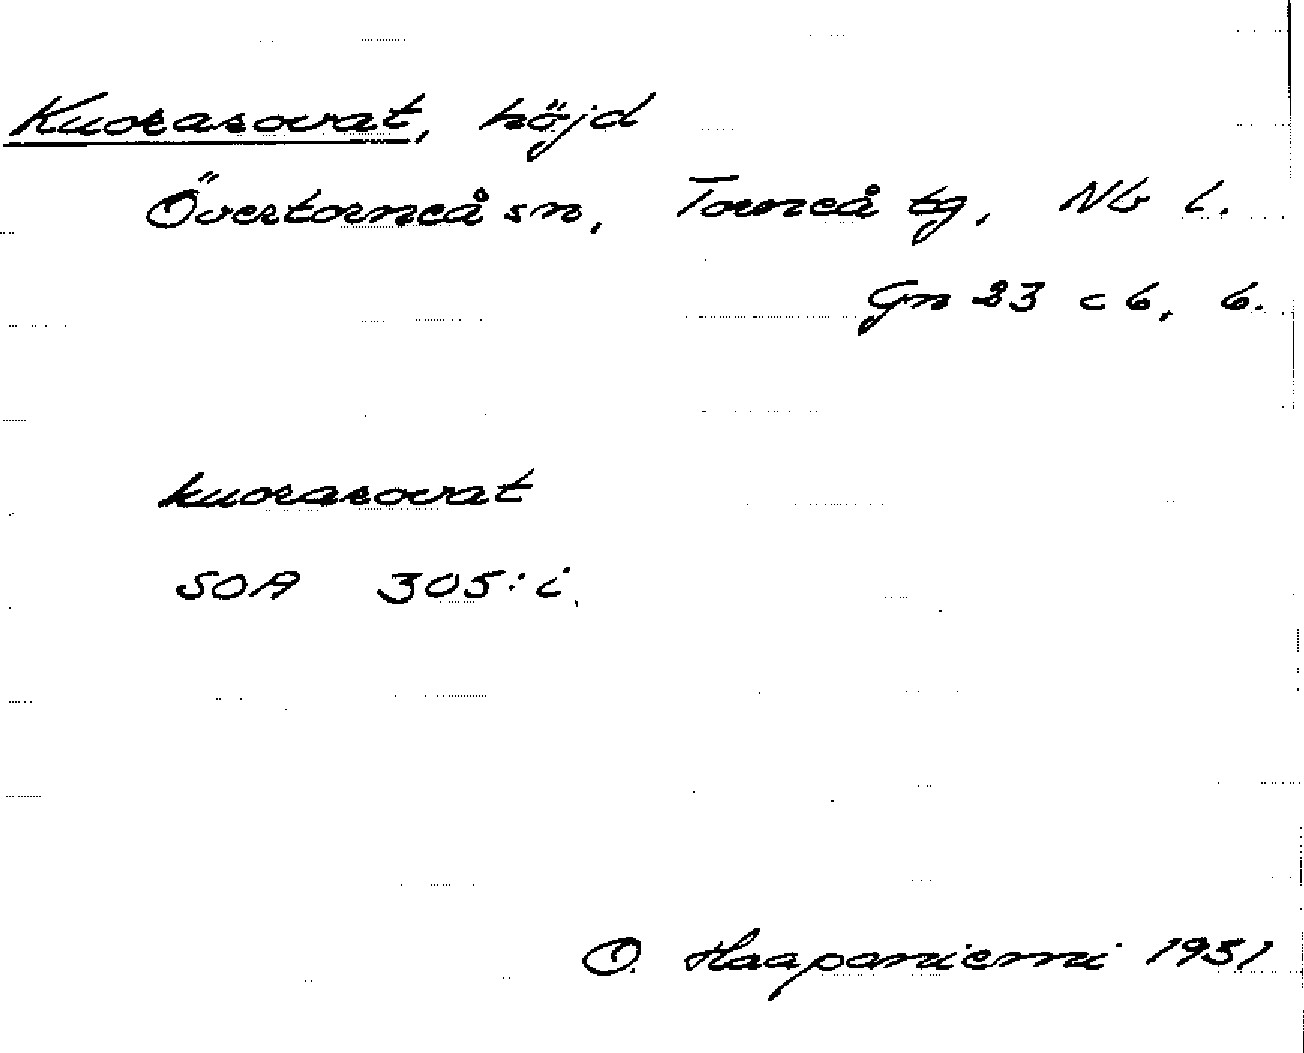 Kuorasovat, höjd
Övertorneå sn, Torneå tg, Nb l.
Gn 23 c 6, 6.
kuorasovat
SOA 305:i
O. Haapaniemi 1931